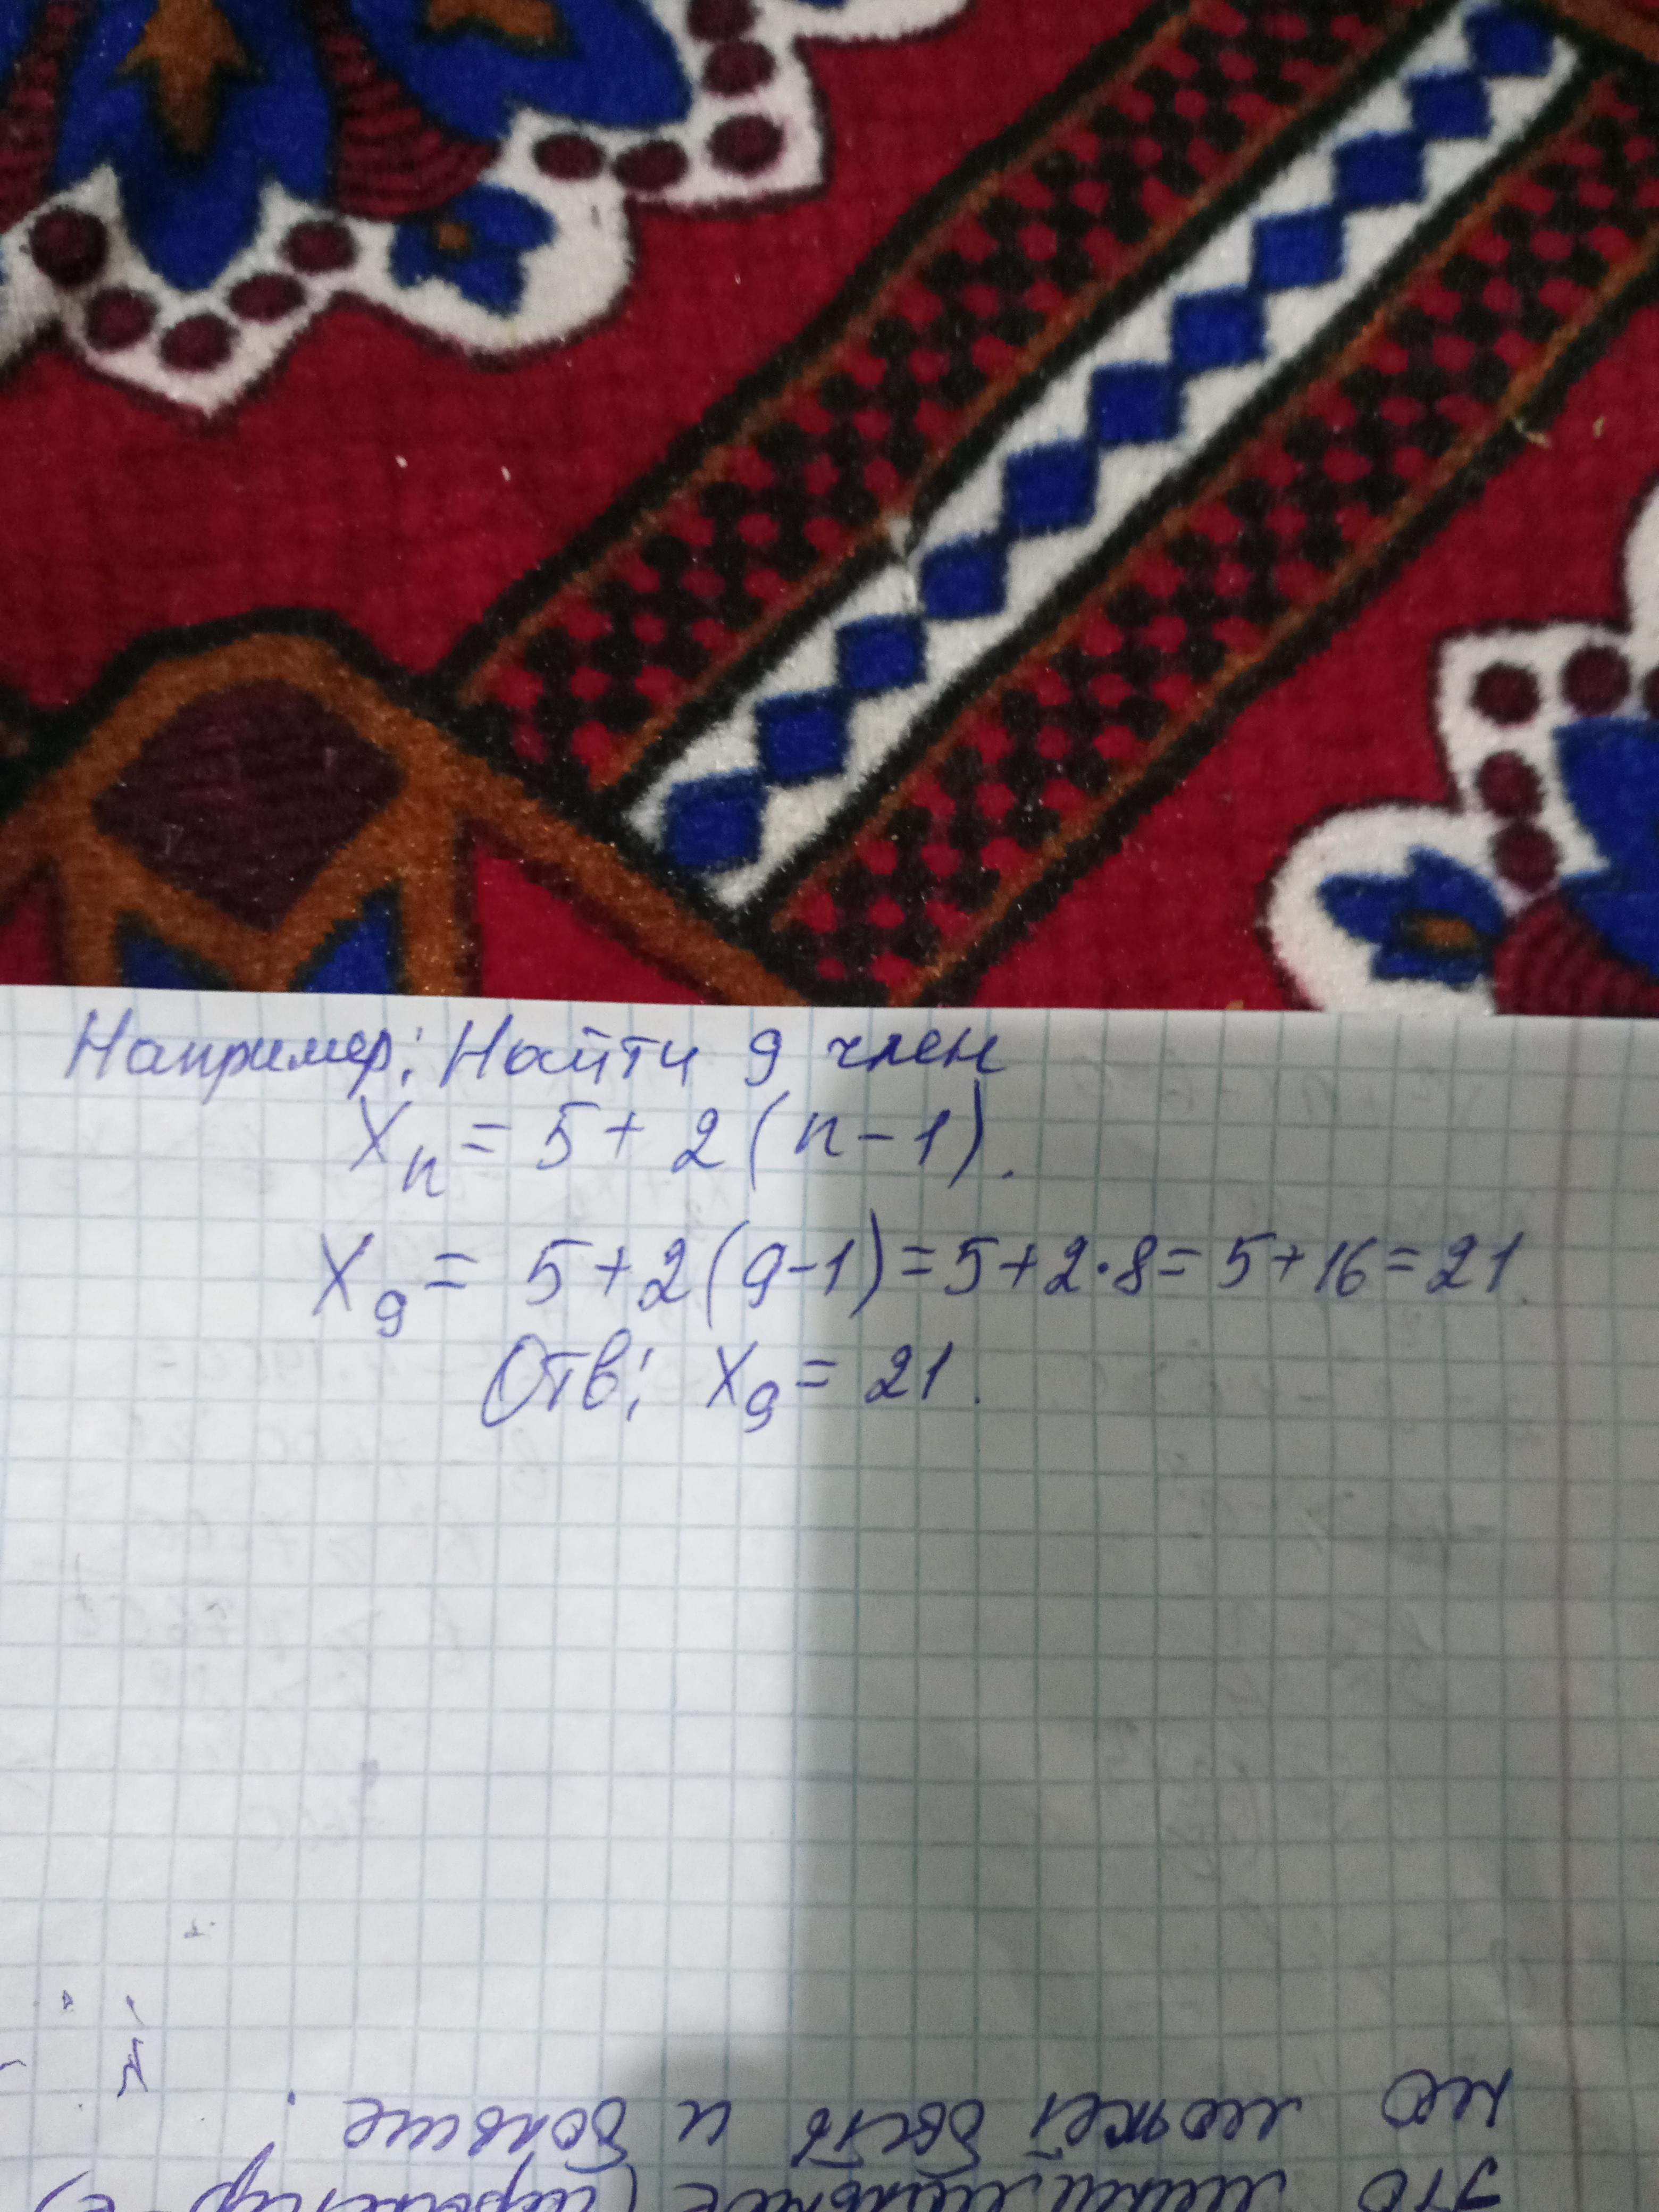 Например: Найти 9 член
Xn = 5 + 2 (n - 1).
X9 = 5 + 2 (9-1) = 5 + 2 • 8 = 5 + 16 = 21.
Отв: X9 = 21.
но может быть и больше.
это